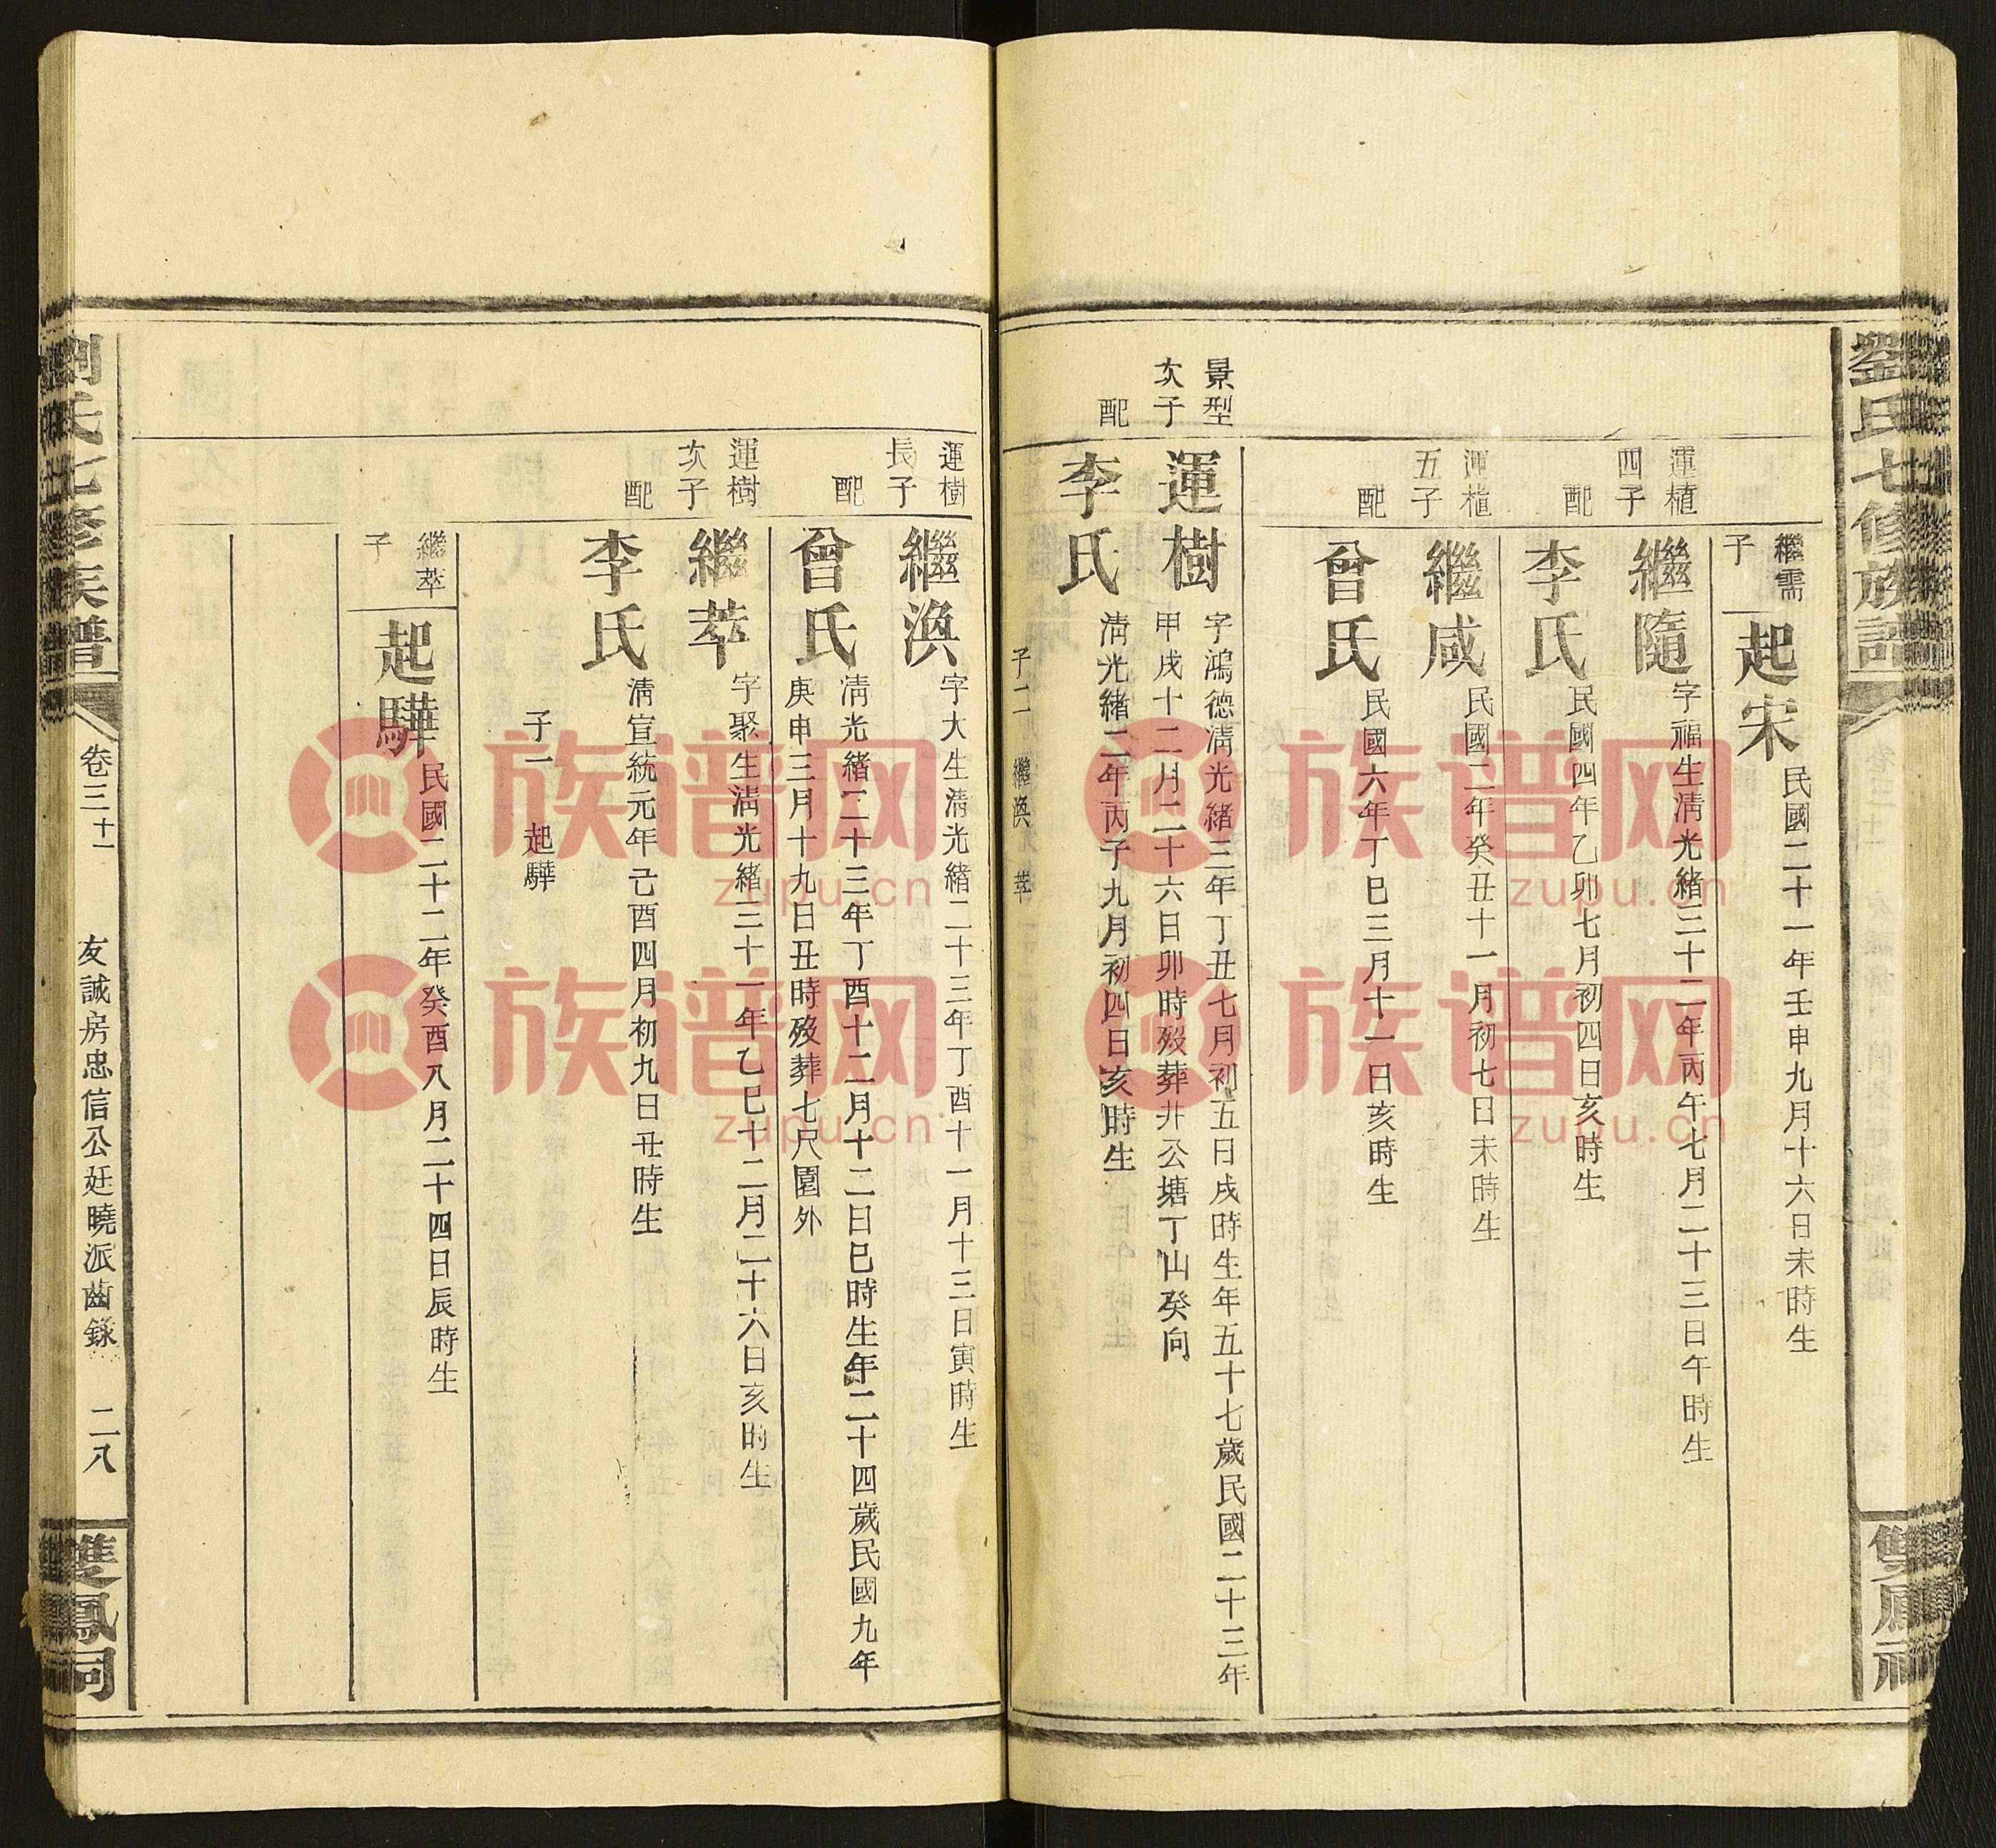 劉氏七修族譜
雙鳳祠
繼需
子
起宋
民國二十一年壬申九月十六日未時生
運植
四子
繼隨
字福生淸光緒三十二年丙午七月二十三日午時生
配
李氏
民國四年乙卯七月初四日亥時生
運植
五子
繼咸
民國二年癸丑十一月初七日未時生
配
曾氏
民國六年丁巳三月十一日亥時生
景型
次子
運樹
字鴻德淸光緒三年丁丑七月初五日戌時生年五十七歲民國二十三年
甲戌十二月二十六日卯時歿葬井公塘丁山癸向
配
李氏
淸光緒二年丙子九月初四日亥時生
子二 繼渙 萃
運樹
長子
繼渙
字大生淸光緒二十三年丁酉十一月十三日寅時生
配
曾氏
淸光緒二十三年丁酉十二月十二日巳時生年二十四歲民國九年
庚申三月十九日丑時歿葬七尺園外
運樹
次子
繼萃
字聚生淸光緒三十一年乙巳十二月二十六日亥時生
配
李氏
淸宣統元年己酉四月初九日丑時生
子一 起驊
繼萃
子
起驊
民國二十二年癸酉八月二十四日辰時生
劉氏七修族譜
卷三十一
友誠房忠信公廷曉派齒錄
二八
雙鳳祠
族谱网
zupu.cn
族谱网
zupu.cn
族谱网
zupu.cn
族谱网
zupu.cn